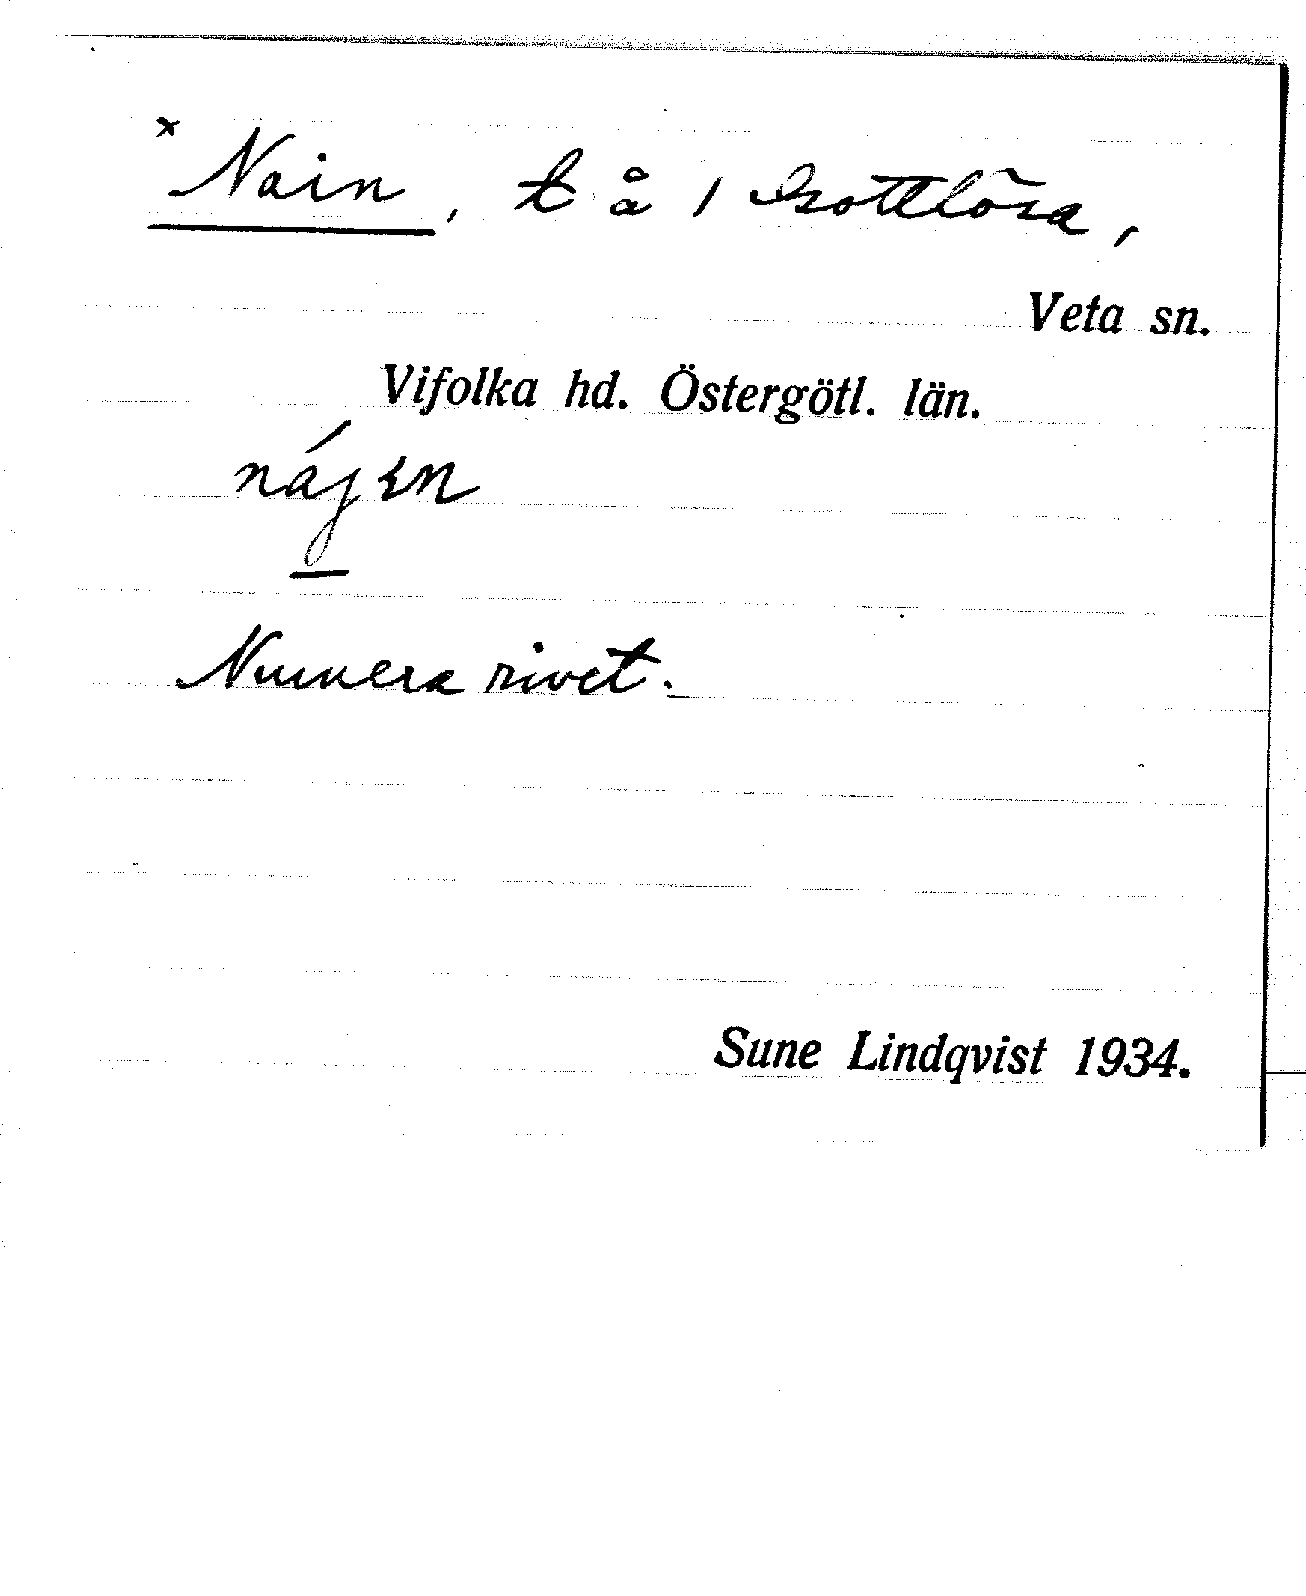 × Nain, t å 1 Gottlösa,
Veta sn.
Vifolka hd. Östergötl. län.
nájen
Numera rivet.
Sune Lindqvist 1934.